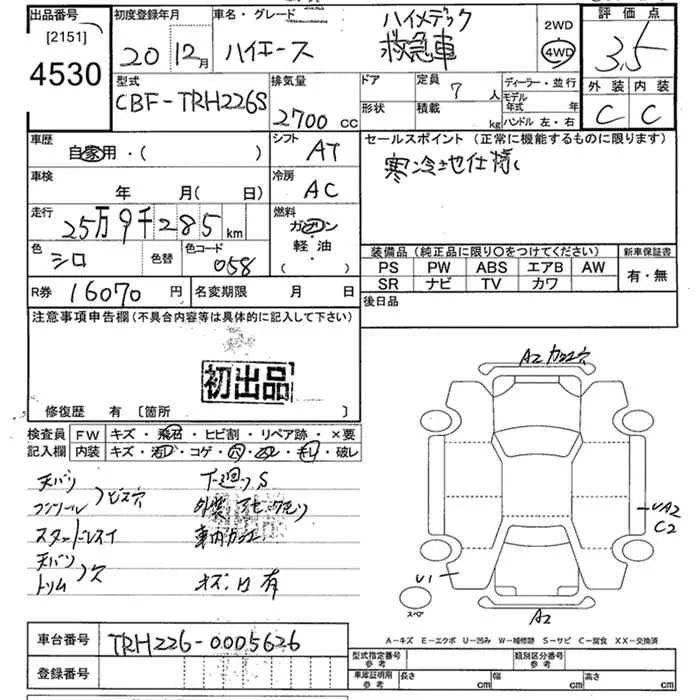 出品番号
[2151]
4530
初度登録年月
20年12月
車名・グレード
ハイエース
ハイメディック
救急車
2WD
4WD
評価点
3.5
外装 内装
C C
型式
CBF-TRH226S
排気量
2700 cc
ドア
形状
定員 7 人
積載 kg
ディーラー・並行
モデル年式 年
ハンドル 左・右
車歴
自家用・( )
シフト
AT
セールスポイント (正常に機能するものに限ります)
寒冷地仕様
車検
年 月( 日)
冷房
AC
走行
25万9千285 km
燃料
ガソリン
軽油
( )
色
シロ
色替
色コード
058
装備品 (純正品に限り○をつけてください)
PS PW ABS エアB AW
SR ナビ TV カワ
新車保証書
有・無
R券 16070 円
名変期限 月 日
後日品
注意事項申告欄(不具合内容等は具体的に記入して下さい)
初出品
修復歴 有 〔箇所 〕
検査員記入欄
FW キズ・飛石・ヒビ割・リペア跡・×要
内装 キズ・汚レ・コゲ・穴・・キレ・破レ
天バリ
ビス穴
下廻り S
天バリ
トリム
キズ・凹 有
A2
UA2
C2
U1
スペア
A2
A-キズ E-エクボ U-凹み W-補修跡 S-サビ C-腐食 XX-交換済
車台番号 TRH226-0005626
登録番号
型式指定番号 参考
類別区分番号 参考
車庫証明用 参考
長さ cm 幅 cm 高さ cm